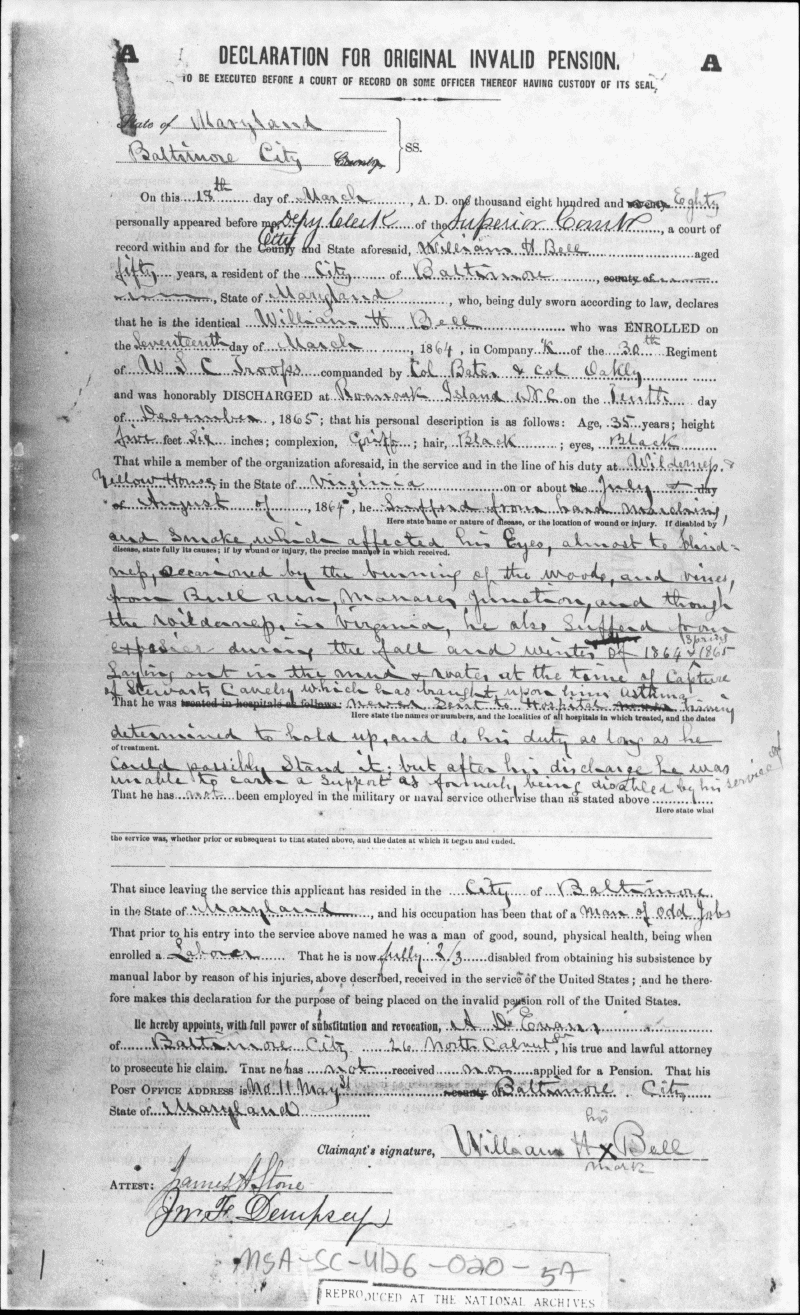 A DECLARATION FOR ORIGINAL INVALID PENSION. A
TO BE EXECUTED BEFORE A COURT OF RECORD OR SOME OFFICER THEREOF HAVING CUSTODY OF ITS SEAL.
State of Maryland
Baltimore City County } ss.
On this 18th day of March, A. D. one thousand eight hundred and Eighty
personally appeared before me Depy Clerk of the Superior Court, a court of
record within and for the County City and State aforesaid, William H Bell aged
fifty years, a resident of the City of Baltimore, county of
, State of Maryland, who, being duly sworn according to law, declares
that he is the identical William H Bell who was ENROLLED on
the Seventeenth day of March, 1864, in Company K of the 30th Regiment
of U S C Troops commanded by Col Bates & Col Oakly
and was honorably DISCHARGED at Roanoak Island N.C on the Tenth day
of December, 1865; that his personal description is as follows: Age, 35 years; height
five feet six inches; complexion, Griff; hair, Black; eyes, Black
That while a member of the organization aforesaid, in the service and in the line of his duty at Wilderness &
Yellow House, in the State of Virginia on or about the July & day
or August of, 1864, he Sufferd from hard marching,
Here state name or nature of disease, or the location of wound or injury. If disabled by
and Smoke, which affected his Eyes, almost to blind=
disease, state fully its causes; if by wound or injury, the precise manner in which received.
ness, occasioned by the burning of the woods, and vines,
from Bull run, Manases Junction, and though
the Wilderness, in Virginia, he also Sufferd from
exposier during the fall and winter of 1864 & 1865
Laying out in the mud & water at the time of Capture
of Stewarts Cavelry which has braught upon him Asthma
That he was treated in hospitals as follows: never sent to Hospital having
Here state the names or numbers, and the localities of all hospitals in which treated, and the dates
determined to hold up, and do his duty as long as he
of treatment.
could possibly Stand it; but after his discharge he was
unable to earn a support as formerly being disabled by his service
That he has not been employed in the military or naval service otherwise than as stated above
Here state what
the service was, whether prior or subsequent to that stated above, and the dates at which it began and ended.
That since leaving the service this applicant has resided in the City of Baltimore
in the State of Maryland, and his occupation has been that of a Man of Odd Jobs
That prior to his entry into the service above named he was a man of good, sound, physical health, being when
enrolled a Laborer That he is now fully 2/3 disabled from obtaining his subsistence by
manual labor by reason of his injuries, above described, received in the service of the United States; and he there-
fore makes this declaration for the purpose of being placed on the invalid pension roll of the United States.
He hereby appoints, with full power of substitution and revocation, A D Evans
of Baltimore City 26 North Calvert St, his true and lawful attorney
to prosecute his claim. That he has not received nor applied for a Pension. That his
POST OFFICE ADDRESS is No. 11 May St county of Baltimore City
State of Maryland
his
Claimant's signature, William H x Bell
mark
ATTEST: James H Stone
Jno. F. Dempsey
MSA-SC-4126-020-57
REPRODUCED AT THE NATIONAL ARCHIVES